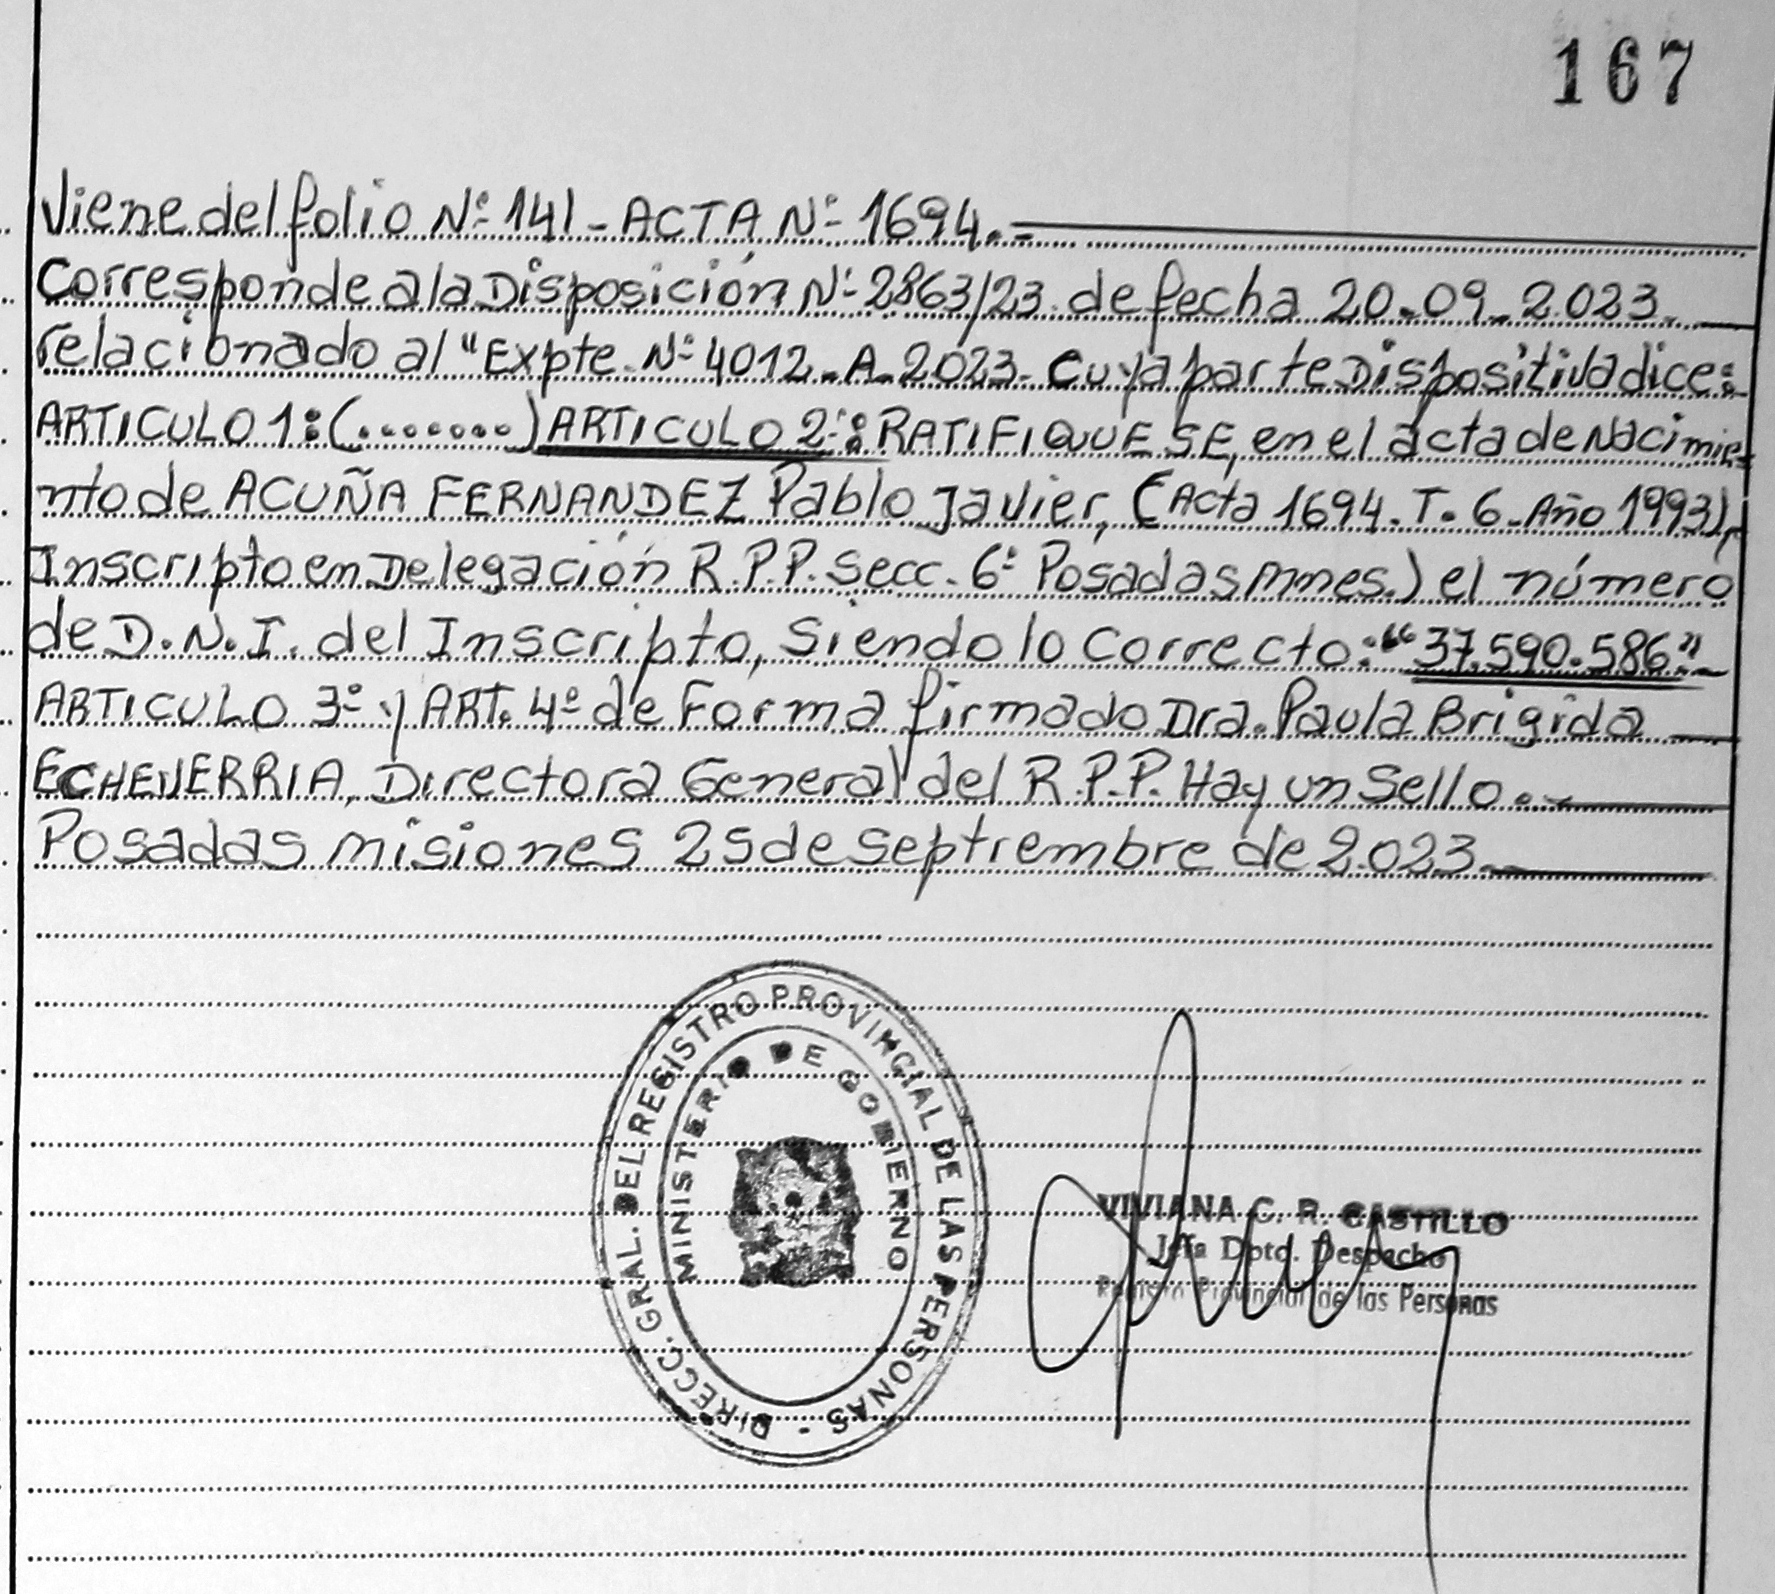 167
Viene del folio Nº 141 - ACTA Nº 1694.-
Corresponde a la Disposición Nº 2863/23. de fecha 20-09-2023.
relacionado al "Expte. Nº 4012-A-2023- Cuya parte Dispositiva dice:
ARTICULO 1: (.......) ARTICULO 2º: RATIFIQUESE, en el acta de Nacimie-
nto de ACUÑA FERNANDEZ Pablo Javier, (Acta 1694. T. 6. Año 1993),
Inscripto en Delegación R.P.P. Secc. 6º Posadas Mnes.) el número
de D.N.I. del Inscripto, Siendo lo Correcto: "37.590.586"
ARTICULO 3º y ART. 4º de Forma firmado Dra. Paula Brigida
ECHEVERRIA, Directora General del R.P.P. Hay un Sello.-
Posadas Misiones 25 de Septiembre de 2.023.
DIRECC. GRAL. DEL REGISTRO PROVINCIAL DE LAS PERSONAS -
MINISTERIO DE GOBIERNO
VIVIANA C. R. CASTILLO
Jefa Dpto. Despacho
Registro Provincial de las Personas